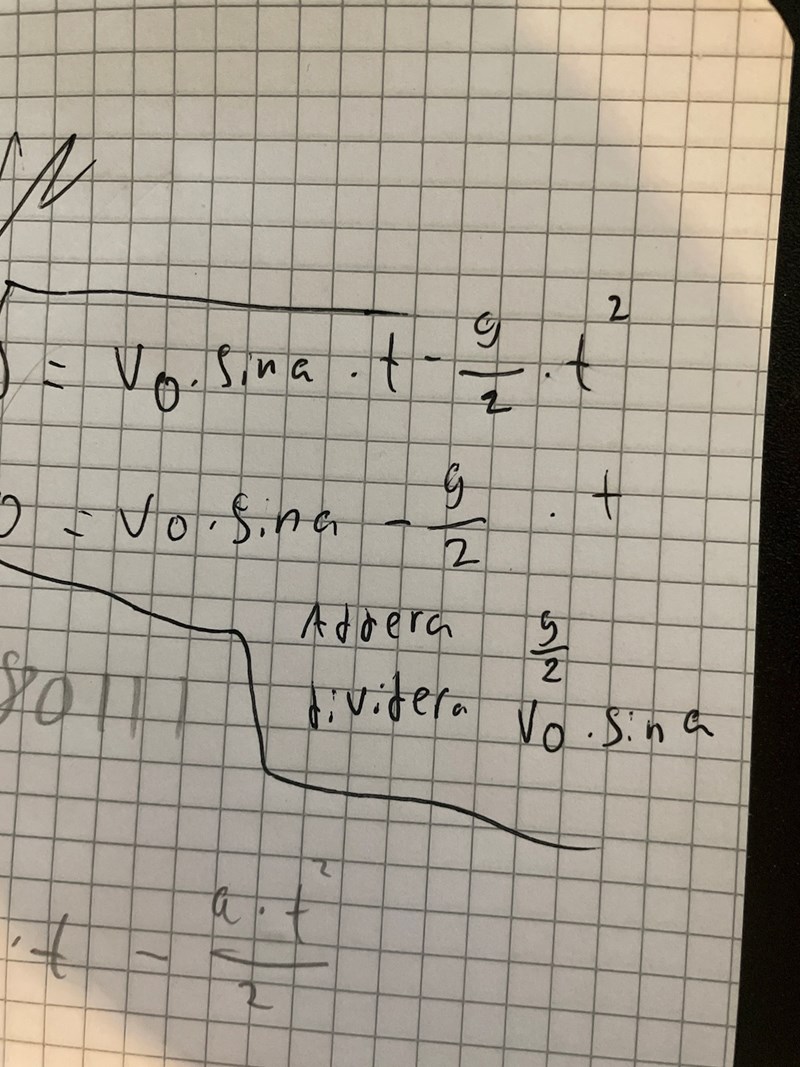 = V0 · sina · t - g/2 · t²
0 = V0 · sina - g/2 · t
Addera g/2
dividera V0 · sina
80111
· t - a · t²/2